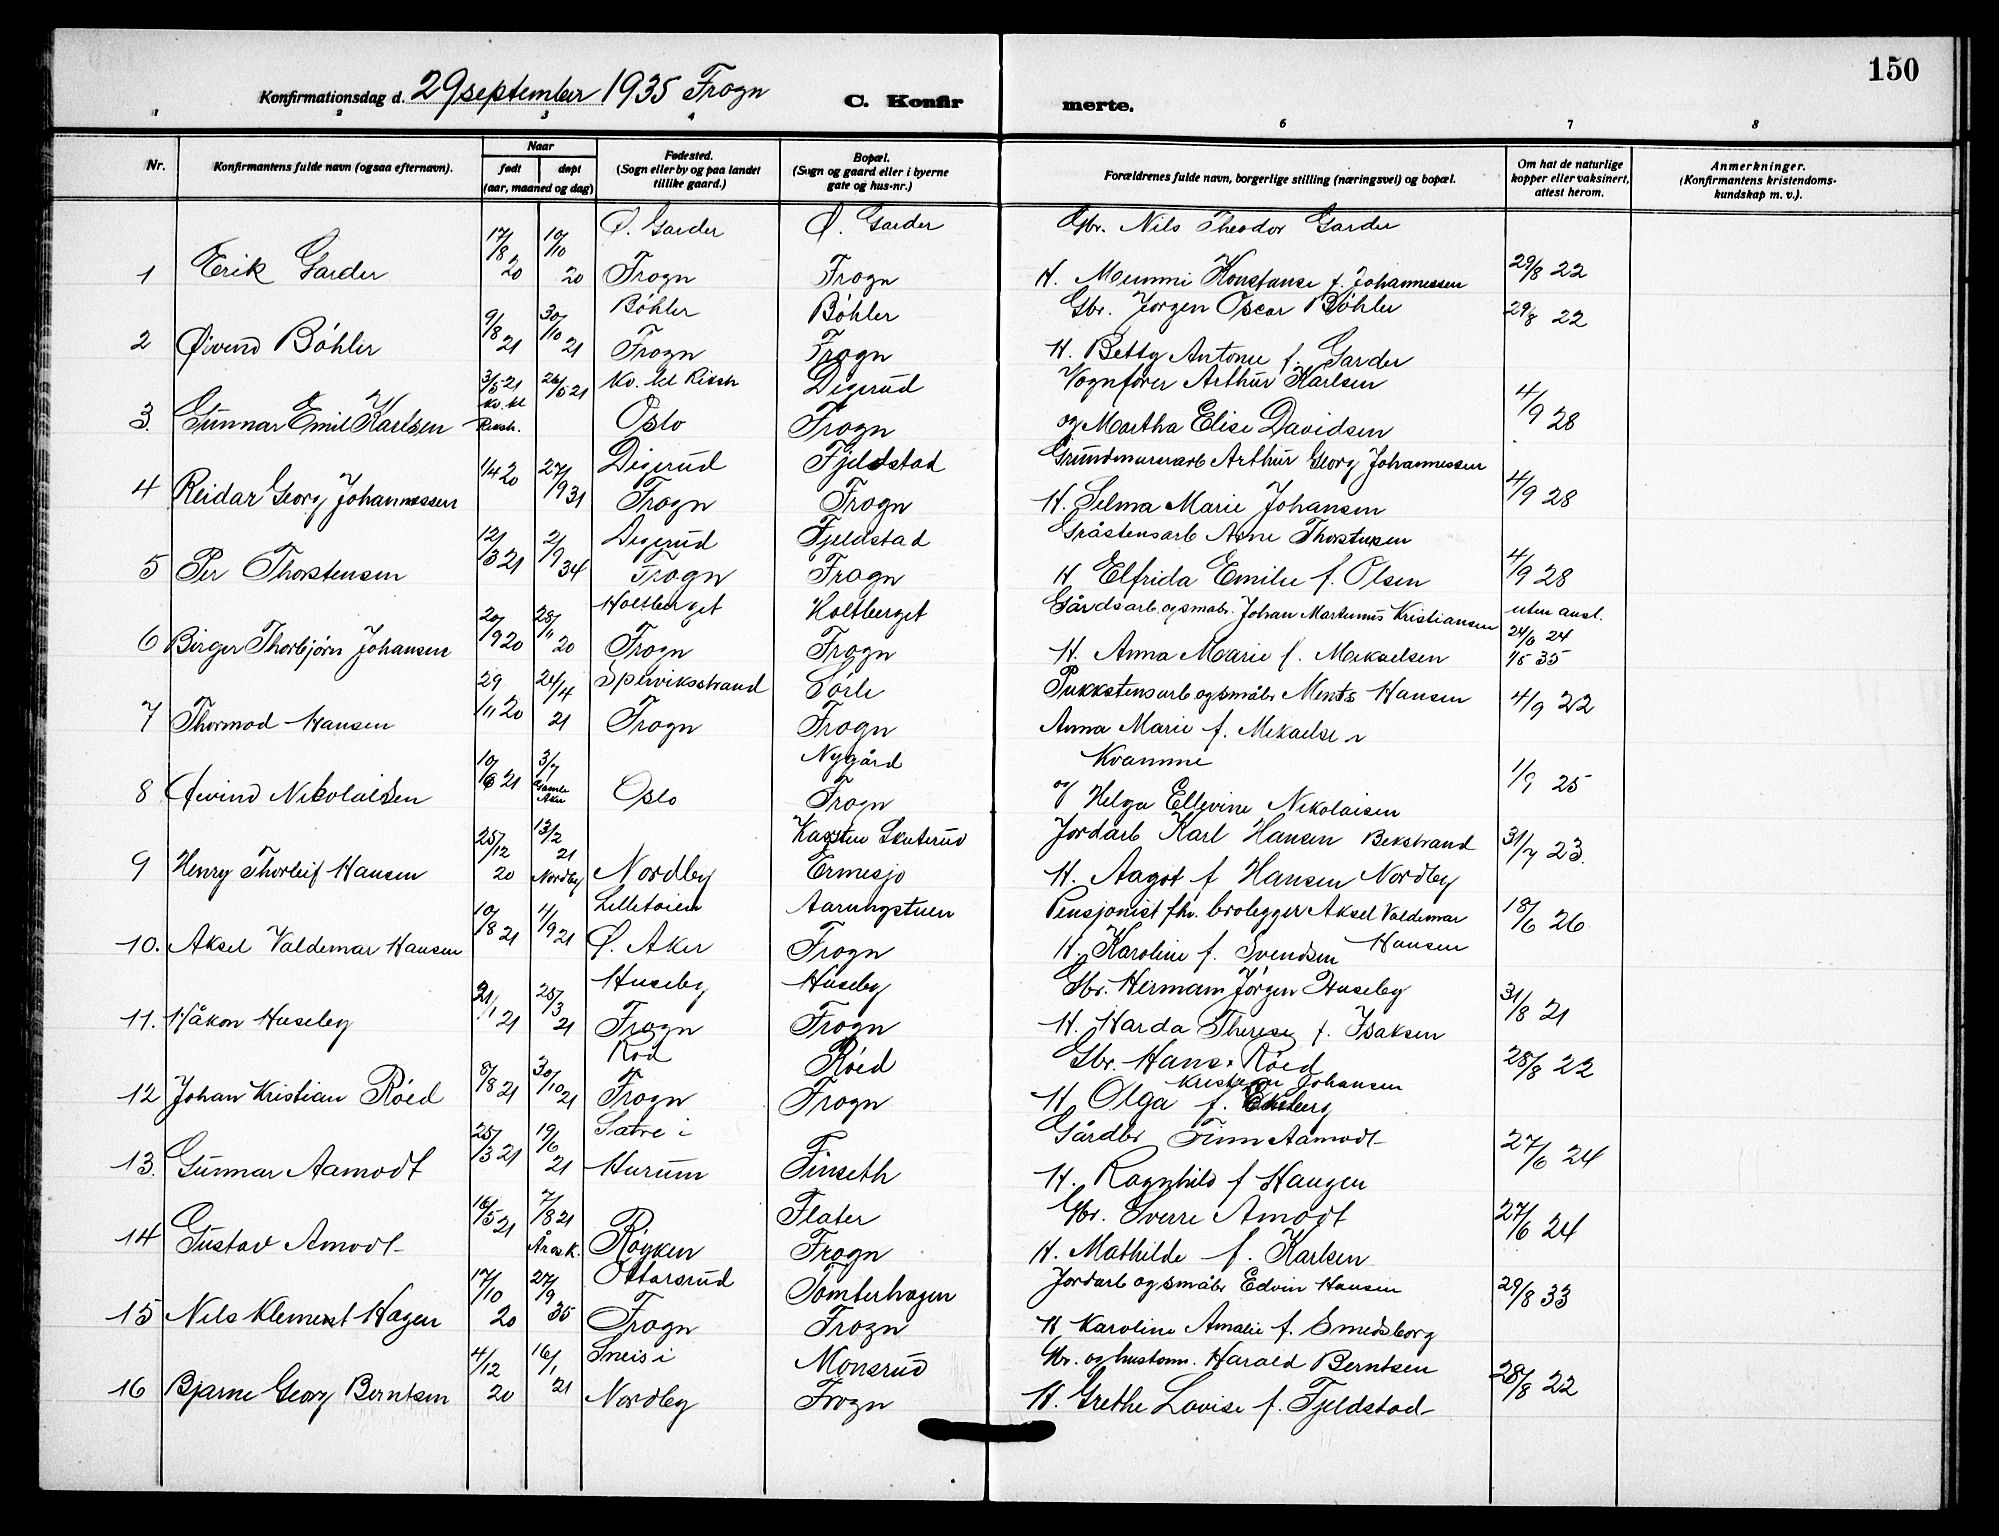 150
Konfirmationsdag d. 29 september 1935 Frogn C. Konfirmerte.
1 2 3 4 6 7 8
Nr. Konfirmantens fulde navn (ogsaa efternavn). Naar født døpt (aar, maaned og dag) Fødested. (Sogn eller by og paa landet tillike gaard.) Bopæl. (Sogn og gaard eller i byerne gate og hus-nr.) Forældrenes fulde navn, borgerlige stilling (næringsvei) og bopæl. Om hat de naturlige kopper eller vaksinert, attest herom. Anmerkninger. (Konfirmantens kristendomskundskap m. v.).
Ø. Garder Ø. Garder Gbr. Nils Theodor Garder
1 Erik Garder 17/8 20 10/10 20 Frogn Frogn H. Konstanse f. Johannessen 29/8 22
Bøhler Bøhler Gbr. Jørgen Oscar Bøhler
2 Øivind Bøhler 9/8 21 30/10 21 Frogn Frogn H. Betty Antonie f. Garder 29/8 22
Kv. kl Riksh Digerud Vognfører Arthur Karlsen
3. Gunnar Emil Karlsen 3/5 21 Kv. kl Riksh. Oslo Frogn og Martha Elise Davidsen 4/9 28
Digerud Fjeldstad Grundmurerarb Arthur Georg Johannessen
4 Reidar Georg Johannessen 1/4 20 27/1 1931 Frogn Frogn H. Selma Marie Johansen 4/9 28
Digerud Fjeldstad Gråstensarb Arne Thorstensen
5 Per Thorstensen 12/3 21 2/9 34 Frogn Frogn H Elfrida Emilie f. Olsen 4/9 28
Holtberget Holtberget Gårdsarb. og småbr. Johan Martinius Kristiansen uten ansl.
6 Birger Thorbjørn Johansen 20/9 20 28/11 20 Frogn Frogn H. Anna Marie f. Mikaelsen 24/6 24 1/5 35
Spirviksstrand Sørli Pukkstensarb og småbr Ments Hansen
7 Thormod Hansen 29/11 20 24/4 21 Frogn Frogn Anna Marie f. Mikaelsen 4/9 22
Nygård Kvamme
8 Øivind Nikolaisen 10/6 21 3/7 Gamle Aker Oslo Frogn og Helga Ellevine Nikolaisen 1/9 25
Skuterud Jordarb Karl Hansen Bekstrand
9 Henry Thorleif Hansen 25/12 20 13/2 21 Nordby Nordby Ermesjø H. Aagot f Hansen Nordby 31/7 23.
Lilletoien Aarungstuen Pensjonist fhv. brolegger Aksel Valdemar Hansen
10. Aksel Valdemar Hansen 10/8 21 4/9 21 Ø. Aker Frogn H. Karoline f. Svendsen 18/6 26
Huseby Huseby Gbr. Hermann Jørgen Huseby
11. Håkon Huseby 21/1 21 25/3 21 Frogn Frogn H. Harda Therese f. Isaksen 31/8 21
Röd Røed Gbr. Hans Kristian Johansen Røed
12 Johan Kristian Røed 8/8 21 30/10 21 Frogn Frogn H Olga f. Ekeberg 28/8 22
Sætre i Gårdbr Finn Aamodt
13. Gunnar Aamodt 25/3 21 19/6 21 Hurum Finseth H. Ragnhild f Haugen 27/6 24
Flater Gbr. Sverre Amodt
14 Gustav Amodt 16/5 21 7/8 21 Åros k. Røyken Frogn H. Mathilde f. Karlsen 27/6 24
Ottarsrud Tomterhagen Jordarb og småbr Edvin Hansen
15 Nils Klement Hagen 17/10 20 27/9 35 Frogn Frogn H Karoline Amalie f. Smedsborg 29/8 33
Sneis i Monsrud Gbr. og hustom. Harald Berntsen
16 Bjarne Georg Berntsen 4/12 20 16/1 21 Nordby Frogn H. Grethe Lovise f. Fjeldstad 28/8 22